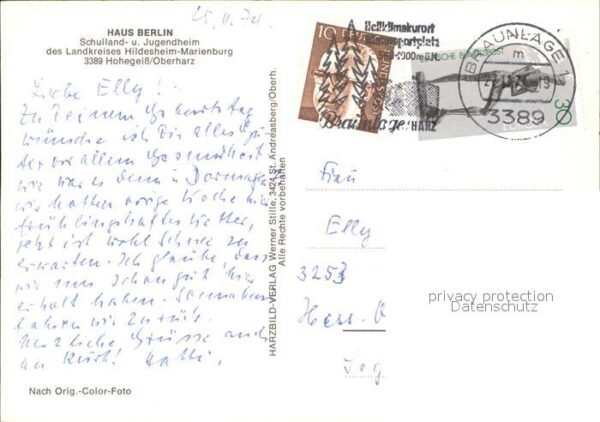 25.11.74
HAUS BERLIN
Schulland- u. Jugendheim
des Landkreises Hildesheim-Marienburg
3389 Hohegeiß/Oberharz
Liebe Elly!
Zu Deinem Geburtstag
wünsche ich Dir alles Gu-
te vor allem Gesundheit
wie war es denn in
wir hatten vorige Woche
frühlingshaftes Wetter,
jetzt ist wohl Schnee zu
erwarten. Ich glaube, dass
wir uns schon gut hier
erholt haben. Sonnabend
fahren wir zurück.
Herzliche Grüsse auch
an Kurt!
Nach Orig.-Color-Foto
HARZBILD-VERLAG Werner Stille, 3424 St. Andreasberg/Oberh.
Alle Rechte vorbehalten
Heilklimakurort
Wintersportplatz
Braunlage/HARZ
10
DEUTSCHE BUNDESPOST
30
EUROPA
BRAUNLAGE 1
m
3389
Frau
Elly
3253
Hess. O
privacy protection
Datenschutz